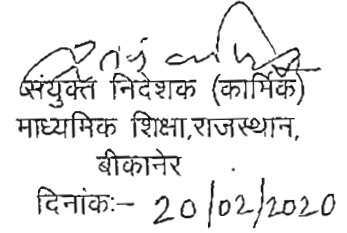 संयुक्त निदेशक (कार्मिक)
माध्यमिक शिक्षा,राजस्थान,
बीकानेर
दिनांकः- 20/02/2020